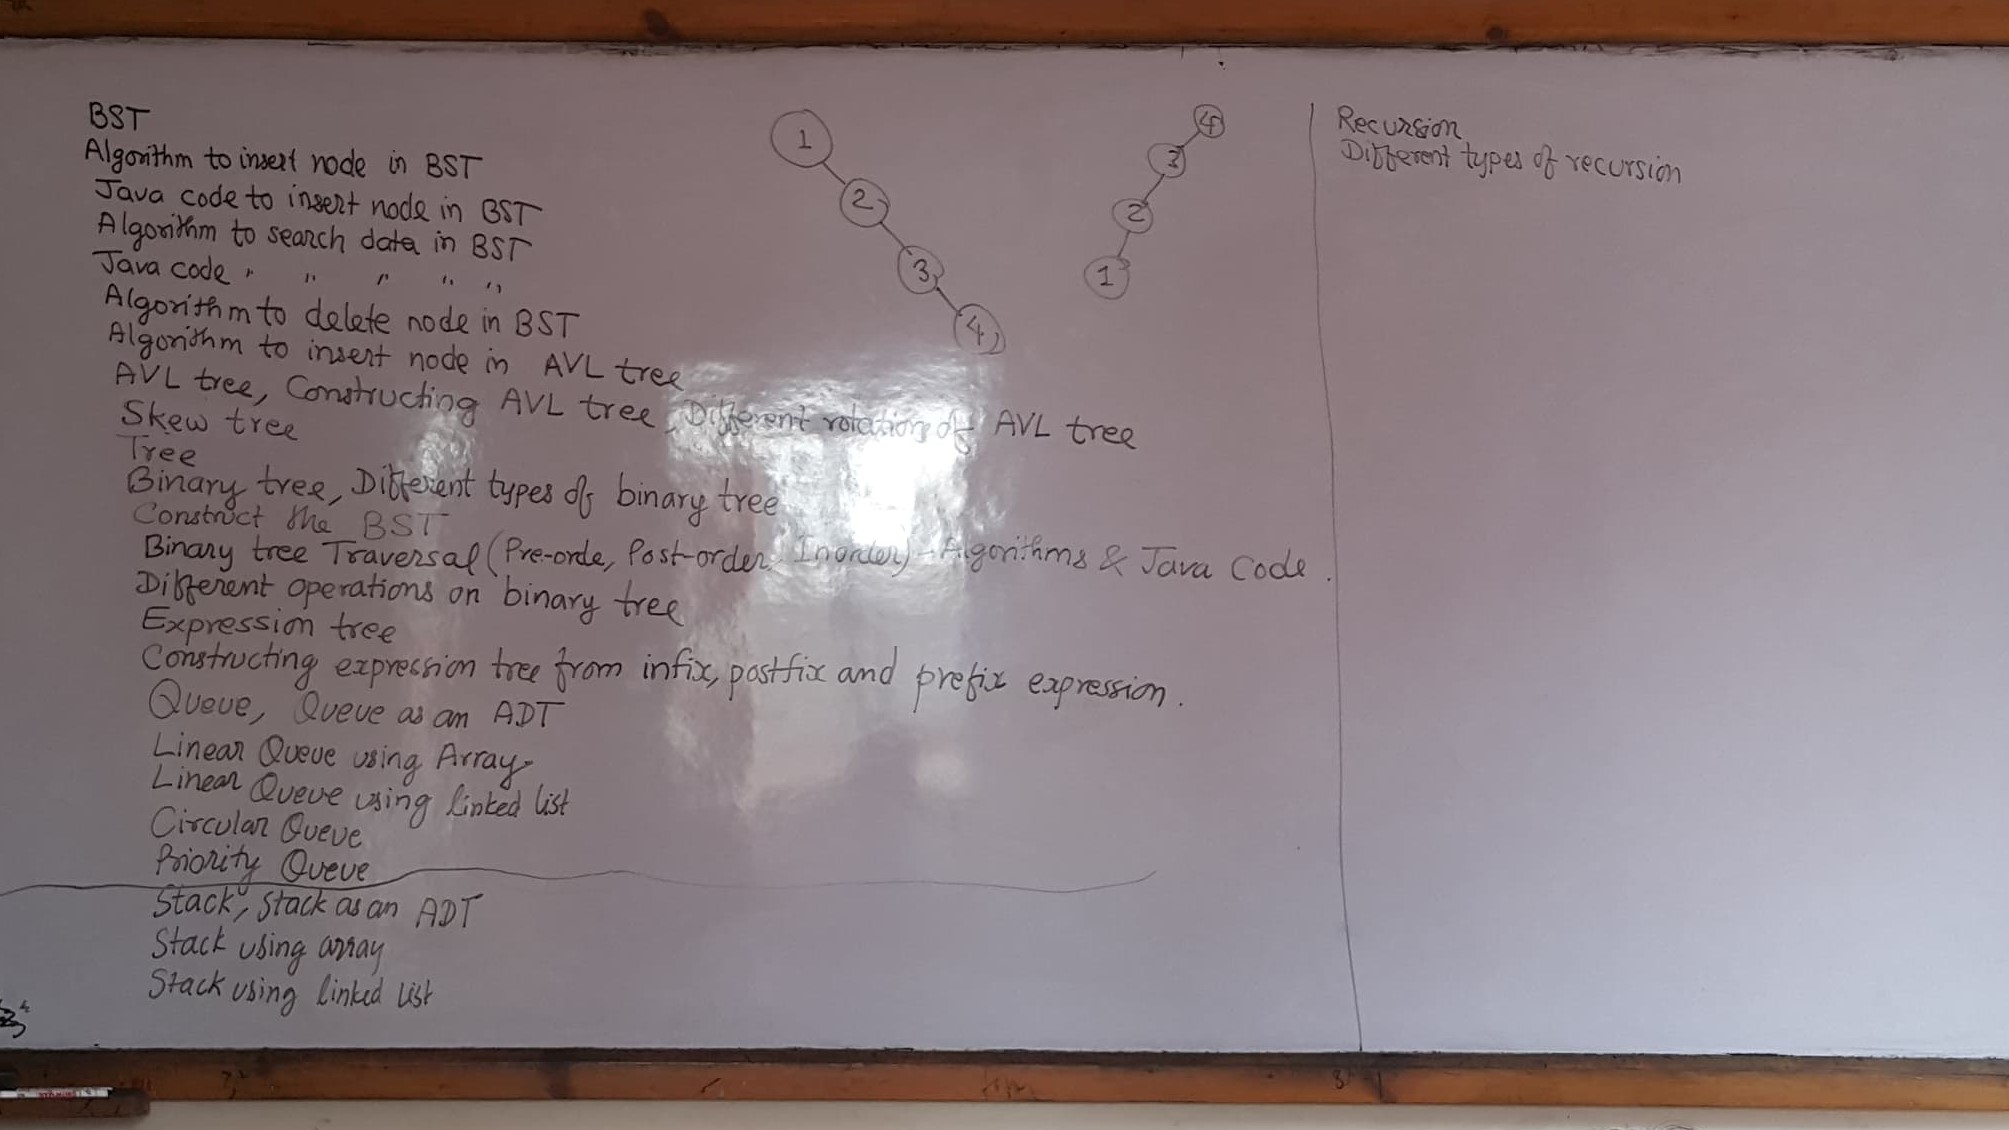 BST
Algorithm to insert node in BST
Java code to insert node in BST
Algorithm to search data in BST
Java code " " " " "
Algorithm to delete node in BST
Algorithm to insert node in AVL tree
AVL tree, Constructing AVL tree, Different rotation of AVL tree
Skew tree
Tree
Binary tree, Different types of binary tree
Construct the BST
Binary tree Traversal (Pre-orde, Post-order, Inorder) - Algorithms & Java Code.
Different operations on binary tree
Expression tree
Constructing expression tree from infix, postfix and prefix expression.
Queue, Queue as an ADT
Linear Queue using Array
Linear Queue using linked list
Circular Queue
Priority Queue
Stack, Stack as an ADT
Stack using array
Stack using linked list
1
2
3
4
4
3
2
1
Recursion
Different types of recursion